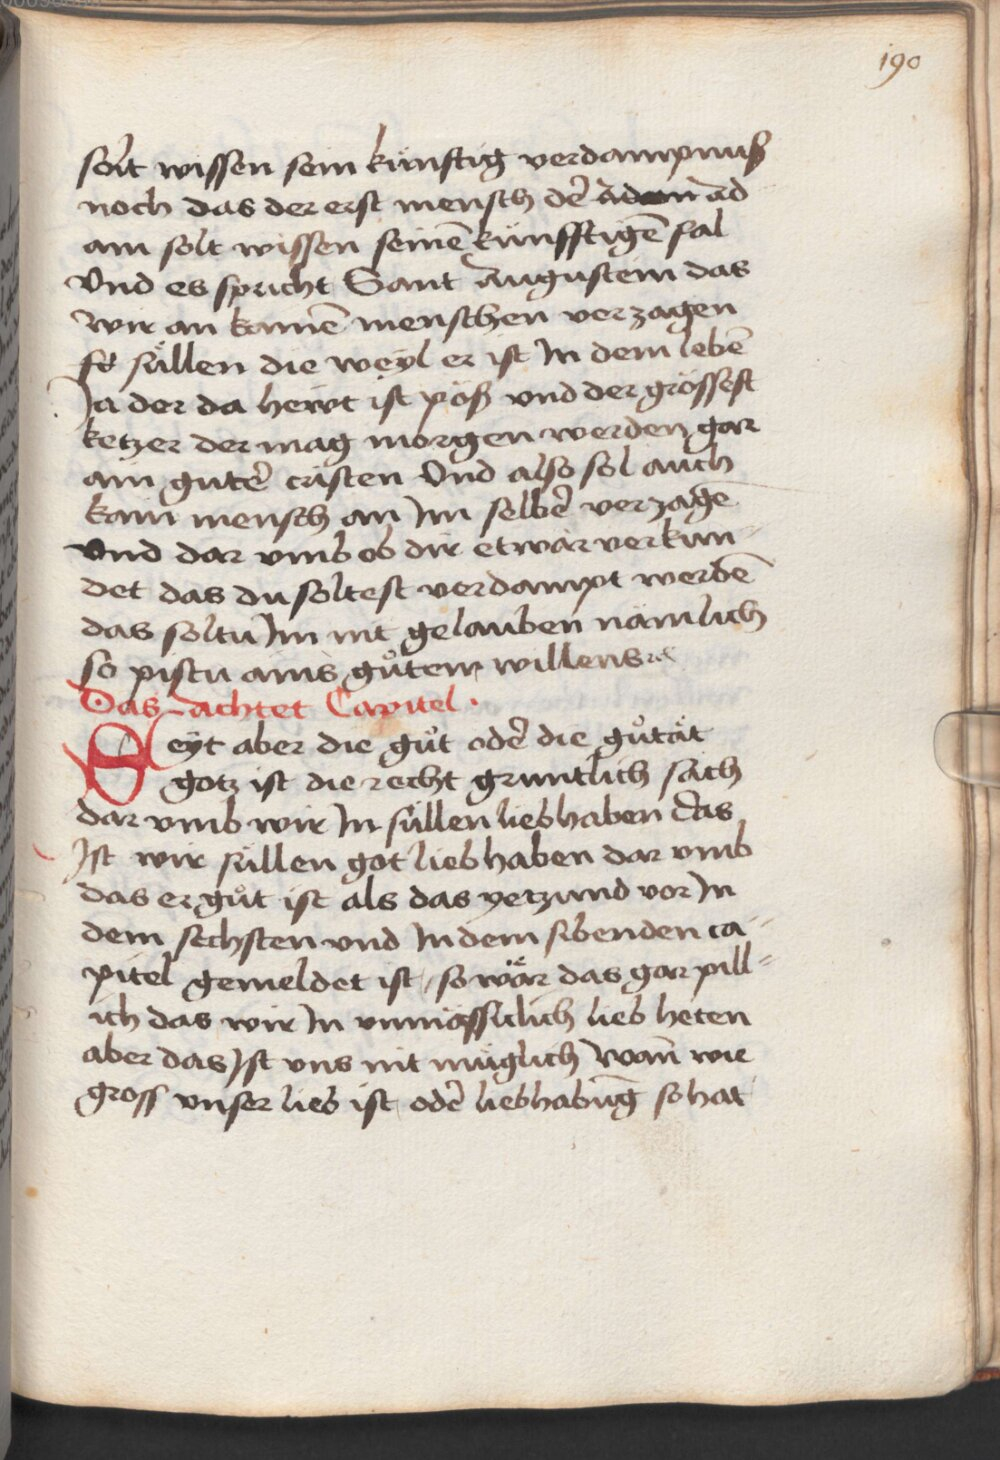 190
solt wissen sein künftig verdampnuß
noch das der erst mensch der Ad
am solt wissen seinē künfftigē fal
Vnd es spricht Sant Augustein das
wir an kainē menschen verzagen
süllen die weyl er ist Jn dem lebē
Ja der da hewt ist pöß vnd der grössest
ketzer der mag morgen werden gar
ain guter cristen Vnd also sol auch
kain mensch an Jm selber verzagē
Vnd dar vmb ob dir etwar verkün-
det das du soltest verdampt werdē
das soltu Jm nit gelauben nämlich
so pistu ains gůten willens ꝛc
Das achtet Capitel .
Seyt aber die gůt oder die gůtät
gotz ist die recht gruntlich sach
dar vmb wir Jn süllen lieb haben Das
Jst wir süllen got lieb haben dar vmb
das er gůt ist als das yetzund vor Jn
dem sechsten vnd Jn dem sibenden ca-
pitel gemeldet ist / so wär das gar pill-
ich das wir Jn vnmässiclich lieb heten
aber das Jst vns nit müglich Wañ wie
gross vnser lieb ist oder liebhabūg so hat